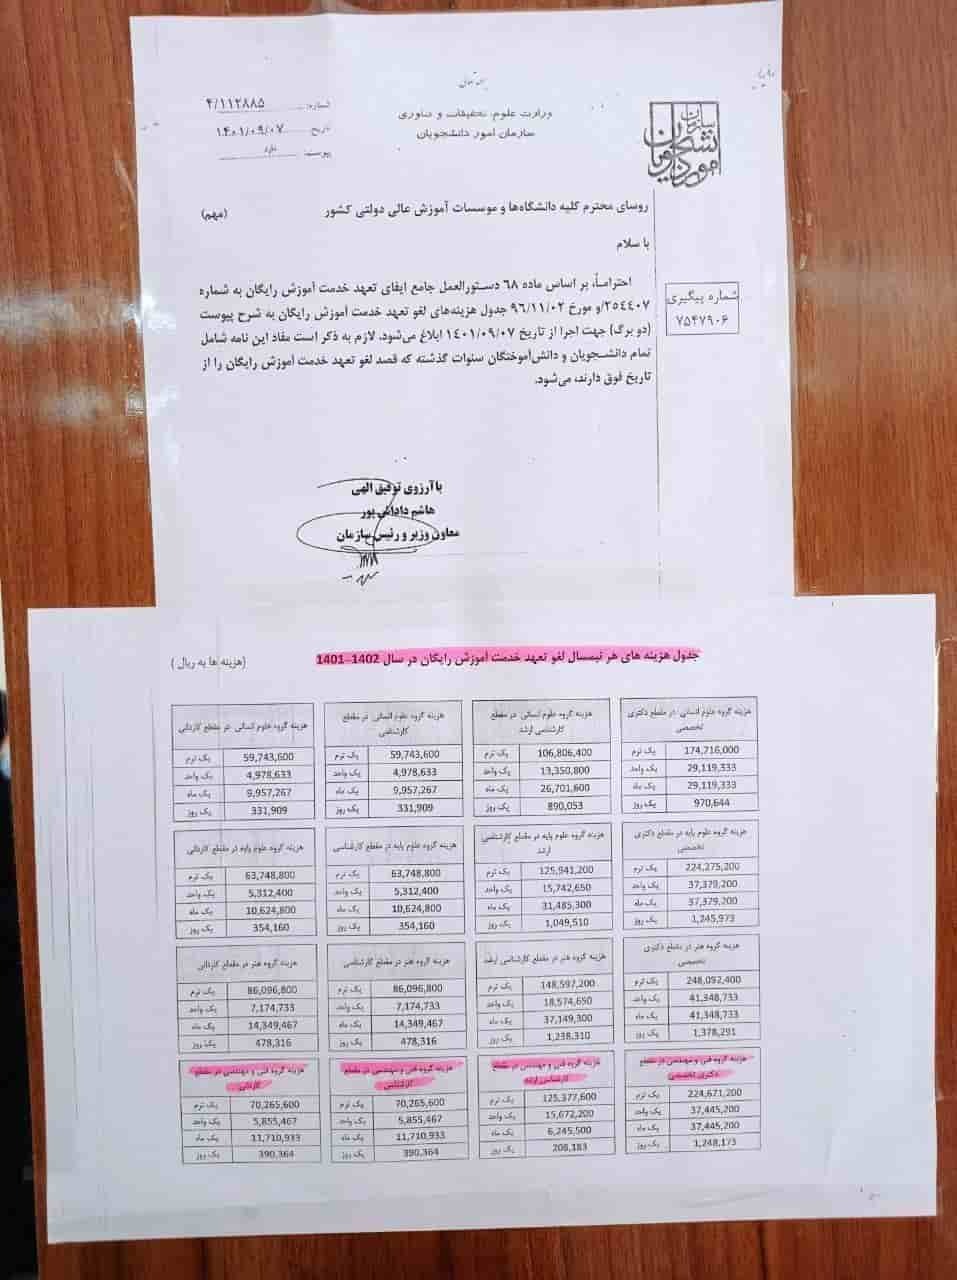 بسمه تعالی
وزارت علوم، تحقیقات و فناوری
سازمان امور دانشجویان
سازمان امور دانشجویان
شماره: ۴/۱۱۲۸۸۵
تاریخ: ۱۴۰۱/۰۹/۰۷
پیوست: دارد
روسای محترم کلیه دانشگاه‌ها و موسسات آموزش عالی دولتی کشور (مهم)
با سلام
شماره پیگیری
۷۵۴۷۹۰۶
احتراماً، بر اساس ماده ۶۸ دستورالعمل جامع ایفای تعهد خدمت آموزش رایگان به شماره
۲۵۴۴۰۷/و مورخ ۹۶/۱۱/۰۲ جدول هزینه‌های لغو تعهد خدمت آموزش رایگان به شرح پیوست
(دو برگ) جهت اجرا از تاریخ ۱۴۰۱/۰۹/۰۷ ابلاغ می‌شود. لازم به ذکر است مفاد این نامه شامل
تمام دانشجویان و دانش‌آموختگان سنوات گذشته که قصد لغو تعهد خدمت آموزش رایگان را از
تاریخ فوق دارند، می‌شود.
با آرزوی توفیق الهی
هاشم داداش پور
معاون وزیر و رئیس سازمان
جدول هزینه های هر نیمسال لغو تعهد خدمت آموزش رایگان در سال 1402-1401 (هزینه ها به ریال )
هزینه گروه علوم انسانی در مقطع دکتری
تخصصی
یک ترم 174,716,000
یک واحد 29,119,333
یک ماه 29,119,333
یک روز 970,644
هزینه گروه علوم انسانی در مقطع
کارشناسی ارشد
یک ترم 106,806,400
یک واحد 13,350,800
یک ماه 26,701,600
یک روز 890,053
هزینه گروه علوم انسانی در مقطع
کارشناسی
یک ترم 59,743,600
یک واحد 4,978,633
یک ماه 9,957,267
یک روز 331,909
هزینه گروه علوم انسانی در مقطع کاردانی
یک ترم 59,743,600
یک واحد 4,978,633
یک ماه 9,957,267
یک روز 331,909
هزینه گروه علوم پایه در مقطع دکتری
تخصصی
یک ترم 224,275,200
یک واحد 37,379,200
یک ماه 37,379,200
یک روز 1,245,973
هزینه گروه علوم پایه در مقطع کارشناسی
ارشد
یک ترم 125,941,200
یک واحد 15,742,650
یک ماه 31,485,300
یک روز 1,049,510
هزینه گروه علوم پایه در مقطع کارشناسی
یک ترم 63,748,800
یک واحد 5,312,400
یک ماه 10,624,800
یک روز 354,160
هزینه گروه علوم پایه در مقطع کاردانی
یک ترم 63,748,800
یک واحد 5,312,400
یک ماه 10,624,800
یک روز 354,160
هزینه گروه هنر در مقطع دکتری
تخصصی
یک ترم 248,092,400
یک واحد 41,348,733
یک ماه 41,348,733
یک روز 1,378,291
هزینه گروه هنر در مقطع کارشناسی ارشد
یک ترم 148,597,200
یک واحد 18,574,650
یک ماه 37,149,300
یک روز 1,238,310
هزینه گروه هنر در مقطع کارشناسی
یک ترم 86,096,800
یک واحد 7,174,733
یک ماه 14,349,467
یک روز 478,316
هزینه گروه هنر در مقطع کاردانی
یک ترم 86,096,800
یک واحد 7,174,733
یک ماه 14,349,467
یک روز 478,316
هزینه گروه فنی و مهندسی در مقطع
دکتری تخصصی
یک ترم 224,671,200
یک واحد 37,445,200
یک ماه 37,445,200
یک روز 1,248,173
هزینه گروه فنی و مهندسی در مقطع
کارشناسی ارشد
یک ترم 125,377,600
یک واحد 15,672,200
یک ماه 6,245,500
یک روز 208,183
هزینه گروه فنی و مهندسی در مقطع
کارشناسی
یک ترم 70,265,600
یک واحد 5,855,467
یک ماه 11,710,933
یک روز 390,364
هزینه گروه فنی و مهندسی در مقطع
کاردانی
یک ترم 70,265,600
یک واحد 5,855,467
یک ماه 11,710,933
یک روز 390,364